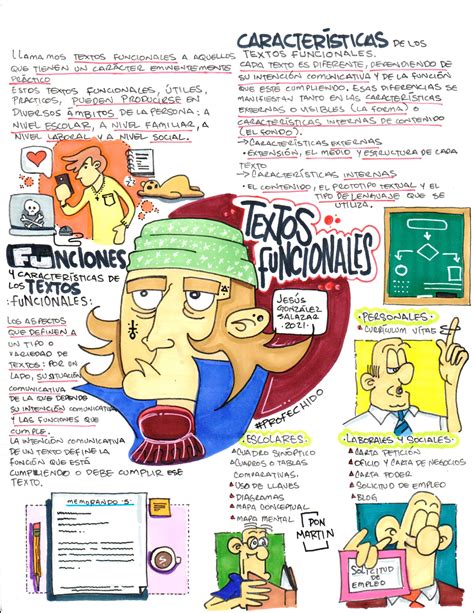 LLAMAMOS TEXTOS FUNCIONALES A AQUELLOS
QUE TIENEN UN CARÁCTER EMINENTEMENTE
PRÁCTICO
ESTOS TEXTOS FUNCIONALES, ÚTILES,
PRACTICOS, PUEDEN PRODUCIRSE EN
DIVERSOS ÁMBITOS DE LA PERSONA: A
NIVEL ESCOLAR, A NIVEL FAMILIAR, A
NIVEL LABORAL Y A NIVEL SOCIAL.
CARACTERÍSTICAS DE LOS
TEXTOS FUNCIONALES.
CADA TEXTO ES DIFERENTE, DEPENDIENDO DE
SU INTENCIÓN COMUNICATIVA Y DE LA FUNCIÓN
QUE ESTE CUMPLIENDO. ESAS DIFERENCIAS SE
MANIFIESTAN TANTO EN LAS CARACTERÍSTICAS
EXTERNAS O VISIBLES (LA FORMA) O
CARACTERÍSTICAS INTERNAS DE CONTENIDO
(EL FONDO).
→CARACTERÍSTICAS EXTERNAS
•EXTENSIÓN, EL MEDIO Y ESTRUCTURA DE CADA
TEXTO
→CARACTERÍSTICAS INTERNAS
•EL CONTENIDO, EL PROTOTIPO TEXTUAL Y EL
TIPO DE LENGUAJE QUE SE
UTILIZA.
TEXTOS
FUNCIONALES
JESÚS
GONZÁLEZ
SALAZAR
.2021.
#PROFECHIDO
FUNCIONES
Y CARACTERÍSTICAS DE
LOS TEXTOS
:FUNCIONALES:
LOS ASPECTOS
QUE DEFINEN A
UN TIPO O
VARIEDAD DE
TEXTOS: POR UN
LADO, SU SITUACIÓN
COMUNICATIVA
DE LA QUE DEPENDE
SU INTENCIÓN COMUNICATIVA
Y LAS FUNCIONES QUE
CUMPLE.
LA INTENCIÓN COMUNICATIVA
DE UN TEXTO DEFINE LA
FUNCIÓN QUE ESTÁ
CUMPLIENDO O DEBE CUMPLIR ESE
TEXTO.
MEMORANDO "5"
•PERSONALES•
•CURRÍCULUM VITAE
•ESCOLARES•
•CUADRO SINÓPTICO
•CUADROS O TABLAS
COMPARATIVAS.
•USO DE LLAVES
•DIAGRAMAS
•MAPA CONCEPTUAL
•MAPA MENTAL
DON
MARTIN
•LABORALES Y SOCIALES•
•CARTA PETICIÓN
•OFICIO Y CARTA DE NEGOCIOS
•CARTA PODER.
•SOLICITUD DE EMPLEO
•BLOG
SOLICITUD
DE
EMPLEO